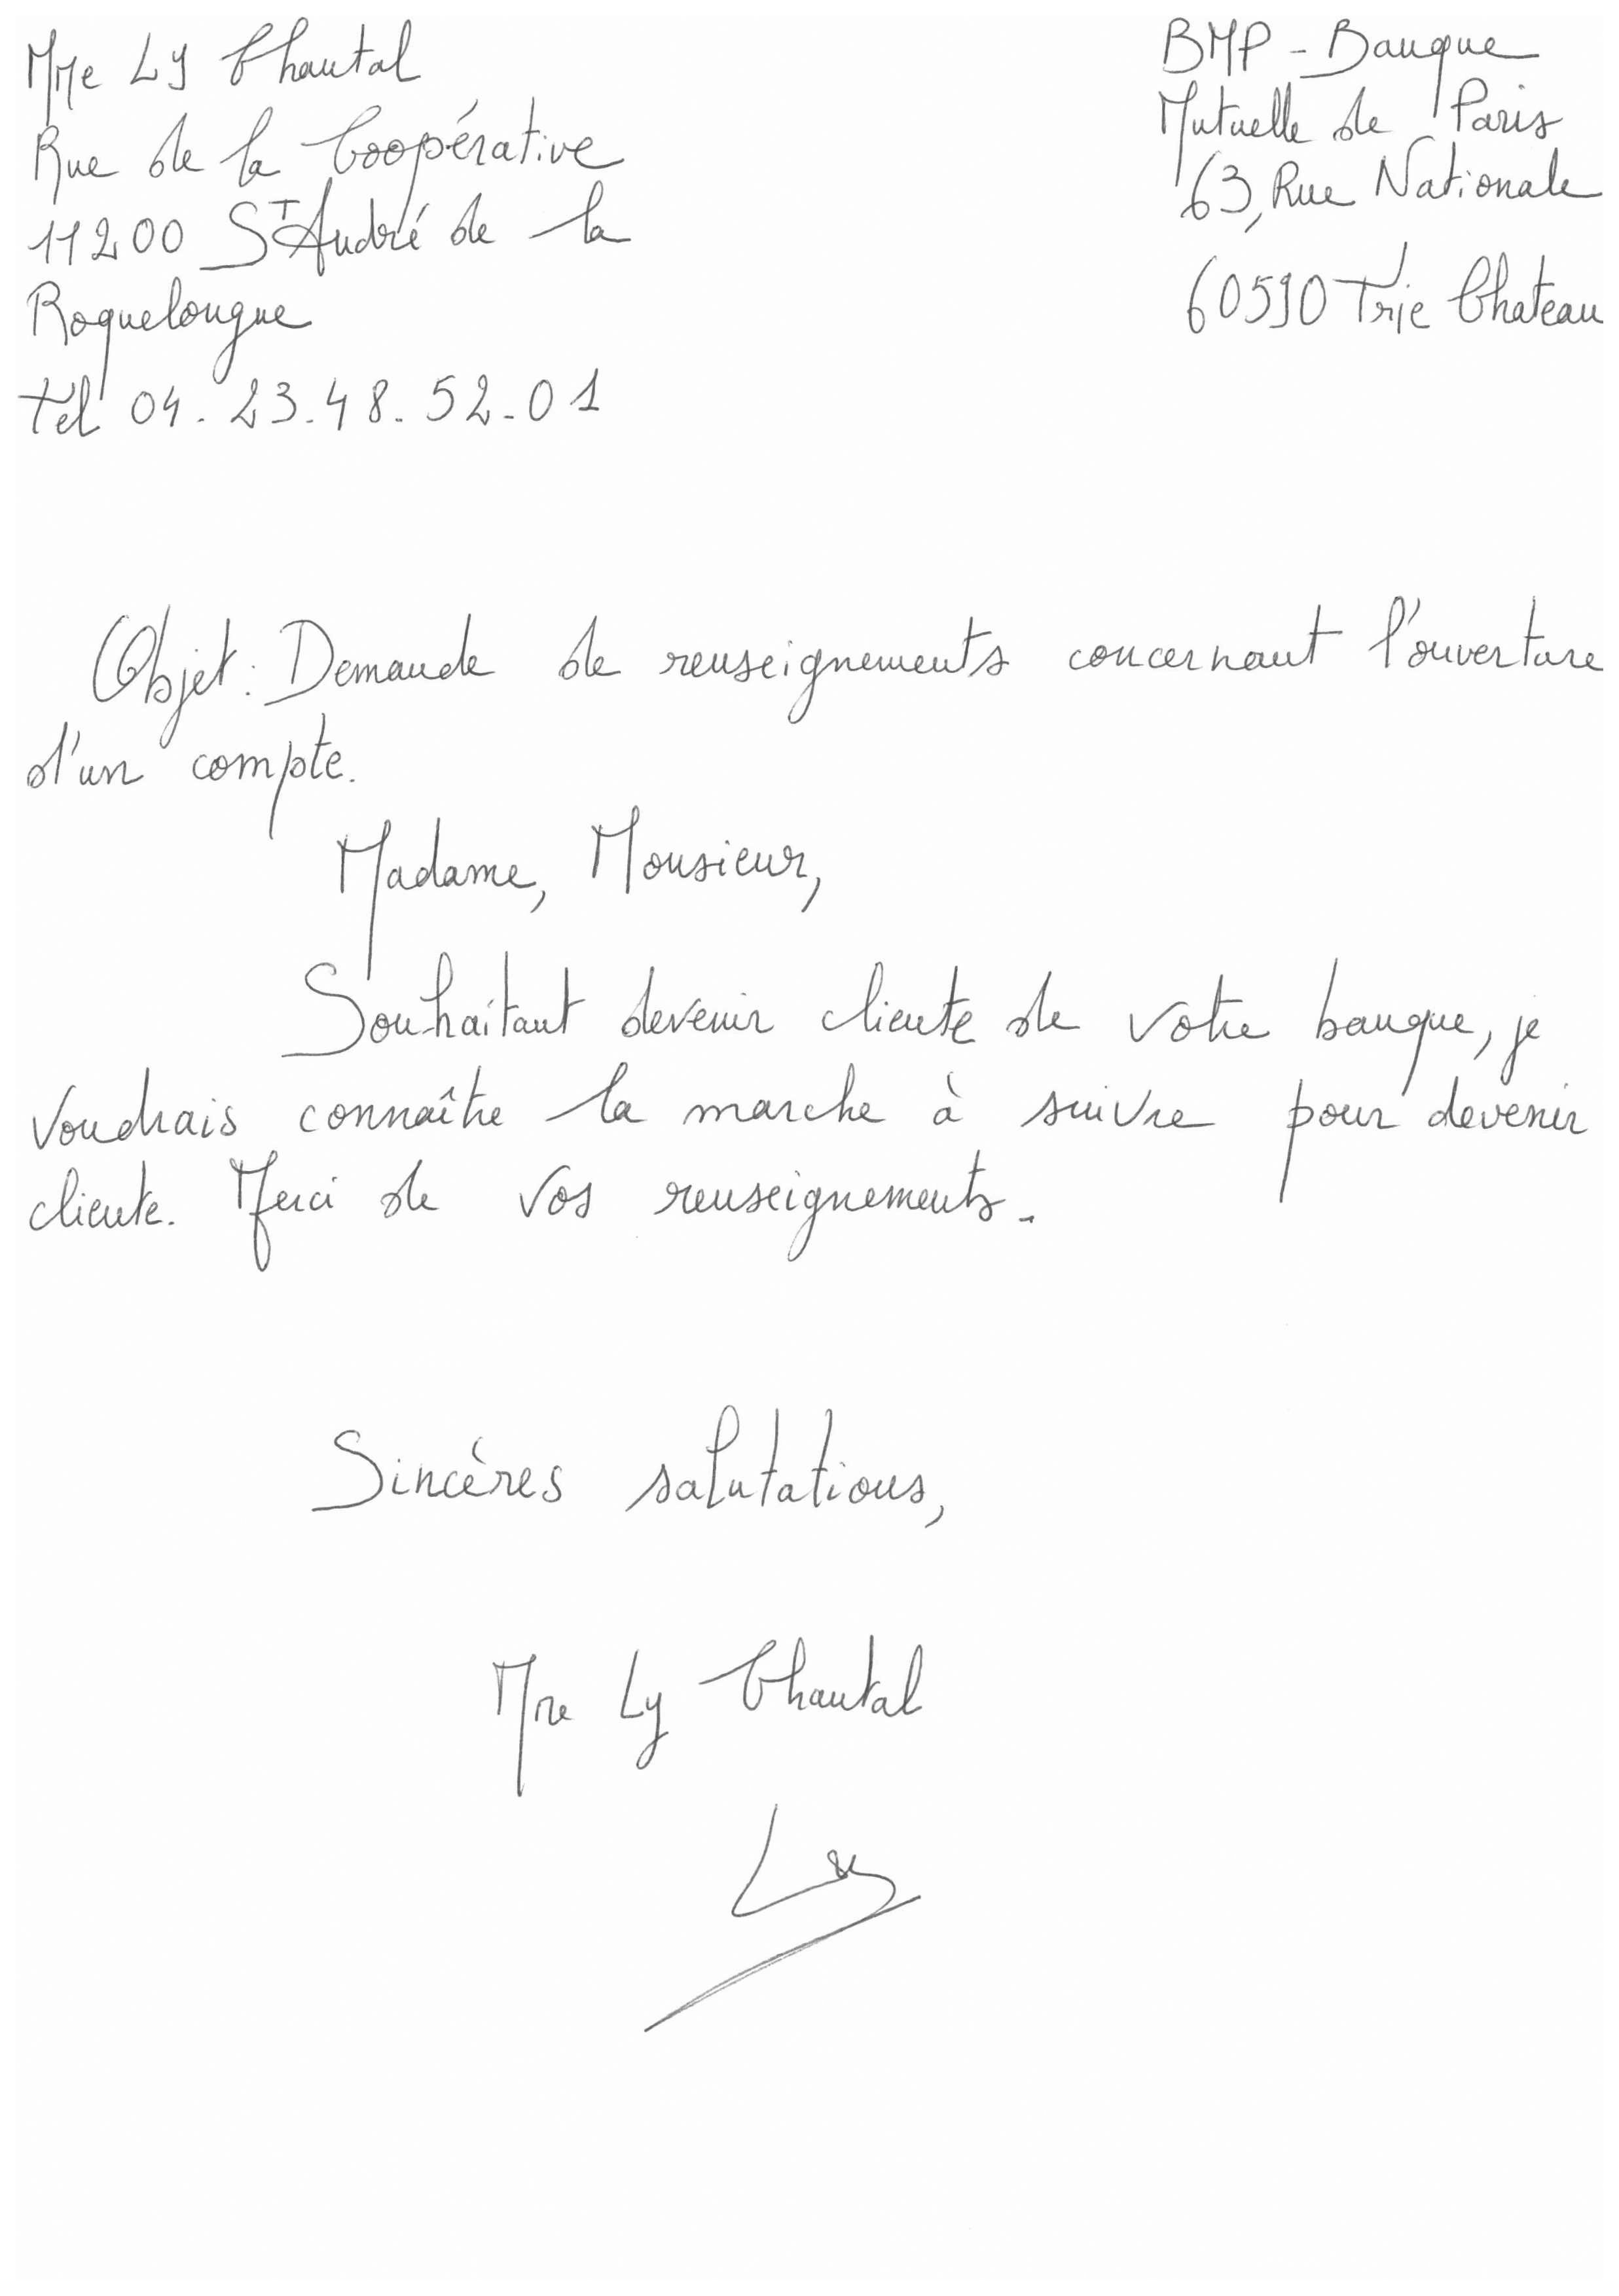 Mme LY Chantal
Rue de la Coopérative
11200 St André de la
Roquelongue
tel 04.23.48.52.01
BMP - Banque
Mutuelle de Paris
63, Rue Nationale
60590 Trie Chateau
Objet : Demande de renseignements concernant l'ouverture
d'un compte.
Madame, Monsieur,
Souhaitant devenir cliente de votre banque, je
voudrais connaître la marche à suivre pour devenir
cliente. Merci de vos renseignements.
Sincères salutations,
Mme Ly Chantal
Ly